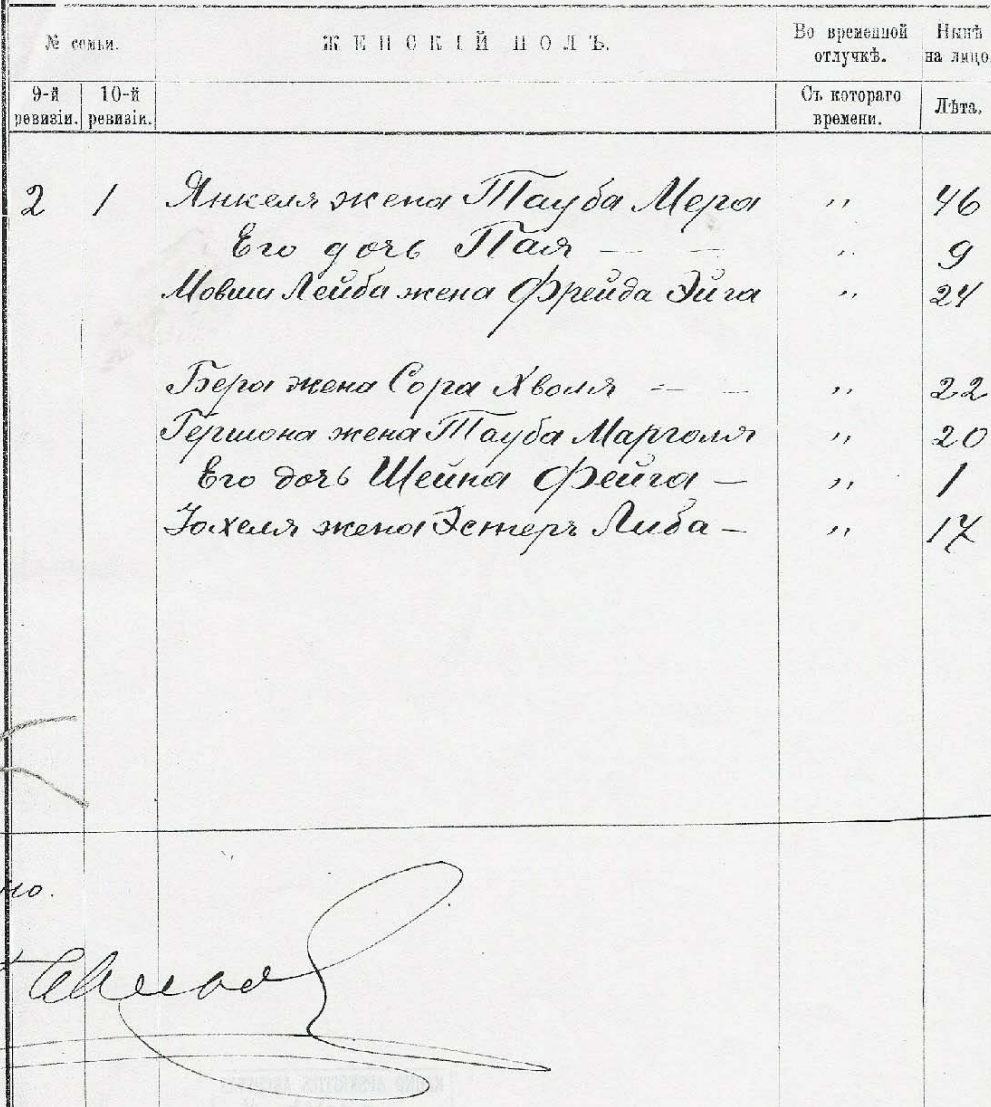 № семьи. ЖЕНСКІЙ ПОЛЪ. Во временной отлучкѣ. Нынѣ на лицо.
9-й ревизіи. 10-й ревизіи. Съ котораго времени. Лѣта.
2 1 Янкеля жена Тауба Мера " 46
Его дочь Пая — — " 9
Мовши Лейба жена Фрейда Эйга " 24
Бера жена Сора Хволя — — " 22
Гершона жена Тауба Марголя " 20
Его дочь Шейна Фейга — " 1
жена Эстеръ Либа — " 17
но.